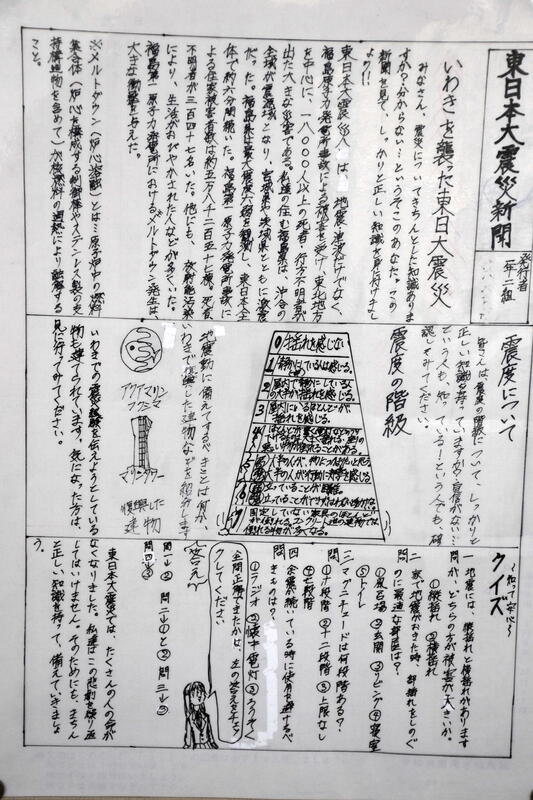 東日本大震災新聞
発行者
二組
いわきを襲った東日本大震災
みなさん、震災についてきちんとした知識ありま
すか？分からない…というそこのあなた。この
新聞を見て、しっかりと正しい知識を身に付けましょ
う!!
東日本大震災は、地震、津波だけでなく、
福島原子力発電所事故による被害を受け、東北地方
を中心に、一八〇〇〇人以上の死者・行方不明者が
出た大きな災害である。私達の住む福島県は、沖合の
全域が震源域となり、宮城県、茨城県とともに激震
だった。福島県は最大震度六強を観測し、東日本全
体で約六分間続いた。福島第一原子力発電所事故に
よる住家被害者数は約五万八千二百五十七棟、死者
不明者が三百四十七名だった。他にも、放射能汚染
により、生活がおびやかされた人などが多くいた。
福島第一原子力発電所におけるメルトダウン発生は、
大きな衝撃を与えた。
※メルトダウン（炉心溶融）とは…原子炉中の燃料
集合体（炉心を構成する制御棒やステンレス製の支
持構造物を含めて）が核燃料の過熱により融解する
こと。
震度について
皆さんは震災の階級について、しっかりと
正しい知識を持っていますか？自信がない…
という人も、知っている！という人でも、確
認してみてください。
震度の階級
0 揺れを感じない
1 静かにている人は感じる。
2 屋内で静かにしている人の大半が揺れを感じる。
3 屋内にいるほとんどが揺れを感じる。
地震動に備えてするべきことは何か、
いわきで復興した建物などを紹介します
アクアマリン
フクシマ
マリンタワー
復興した
建物
いわきでの震災経験を伝えようとしている
物も建てられています。気になった方は、
見に行ってみてください。
クイズ
〜知って安心〜
一 地震には、縦揺れと横揺れがあります
が、どちらの方が被害が大きいか。
①縦揺れ ②横揺れ
二 家で地震がおきた時、群揺れをしのぐ
のに最適な部屋は？
①風呂場 ②玄関 ③リビング ④寝室
⑤トイレ
三 マグニチュードは何段階ある？
①十段階 ②十二段階 ③上限なし
④七段階
四 余震が続いている時に使用を避けるべ
きものは？
①ラジオ ②懐中電灯 ③ろうそく
全問正解できたかは、左の答えをチェッ
クしてください
〜答え〜
問一↓② 問二↓①と② 問三↓③
問四↓③
東日本大震災では、たくさんの人の命が
なくなりました。私達はこの悲劇を繰り返
してはいけません。そのためにも、きちん
と正しい知識を持って、備えていきましょ
う。